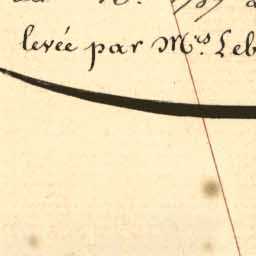 levée par Mrs Leb